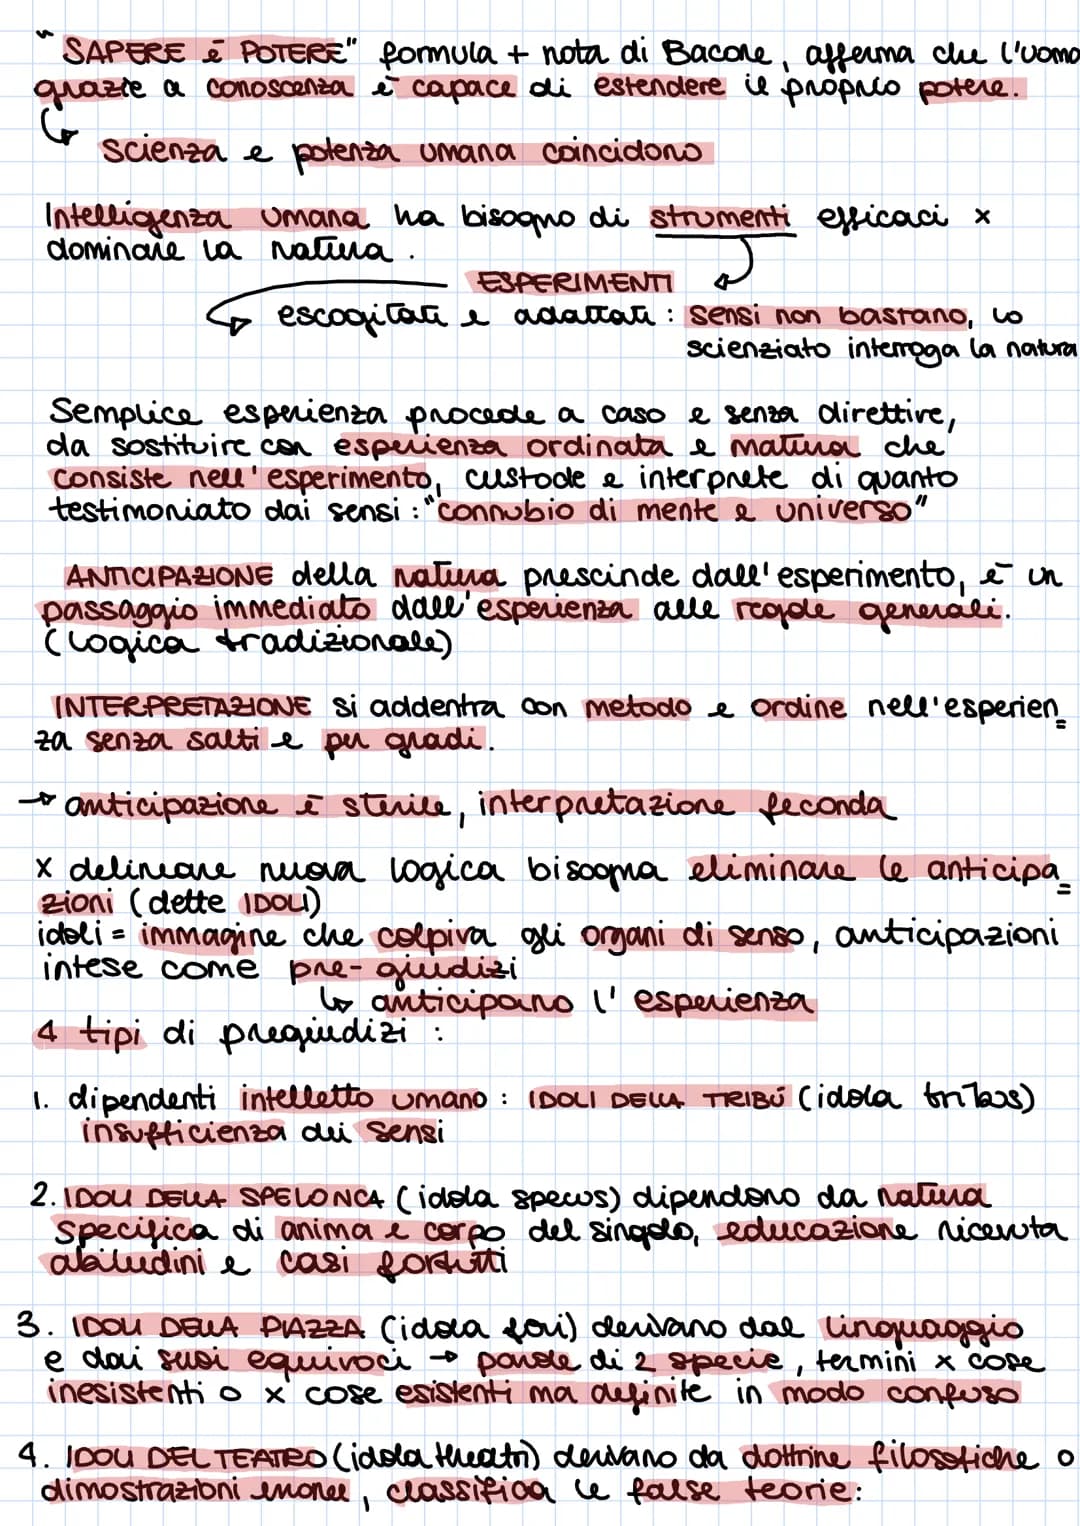 "SAPERE è POTERE" formula + nota di Bacone, afferma che l'uomo
grazie a conoscenza è capace di estendere il proprio potere.
↳ scienza e potenza umana coincidono
Intelligenza umana ha bisogno di strumenti efficaci x
dominare la natura.
ESPERIMENTI
escogitati e adattati: sensi non bastano, lo
scienziato interroga la natura
Semplice esperienza procede a caso e senza direttive,
da sostituire con esperienza ordinata e matura che
consiste nell'esperimento, custode e interprete di quanto
testimoniato dai sensi: "connubio di mente e universo"
ANTICIPAZIONE della natura prescinde dall'esperimento, è un
passaggio immediato dall'esperienza alle regole generali.
(logica tradizionale)
INTERPRETAZIONE si addentra con metodo e ordine nell'esperien=
za senza salti e per gradi.
→ anticipazione è sterile, interpretazione feconda
x delineare nuova logica bisogna eliminare le anticipa=
zioni (dette IDOLI)
idoli = immagine che colpiva gli organi di senso, anticipazioni
intese come pre-giudizi
↳ anticipano l'esperienza
4 tipi di pregiudizi:
1. dipendenti intelletto umano: IDOLI DELLA TRIBÙ (idola tribus)
insufficienza dei sensi
2. IDOLI DELLA SPELONCA (idola specus) dipendono da natura
specifica di anima e corpo del singolo, educazione ricevuta
abitudini e casi fortuiti
3. IDOLI DELLA PIAZZA (idola fori) derivano dal linguaggio
e dai suoi equivoci → parole di 2 specie, termini x cose
inesistenti o x cose esistenti ma definite in modo confuso
4. IDOLI DEL TEATRO (idola theatri) derivano da dottrine filosofiche o
dimostrazioni erronee, classifica le false teorie: